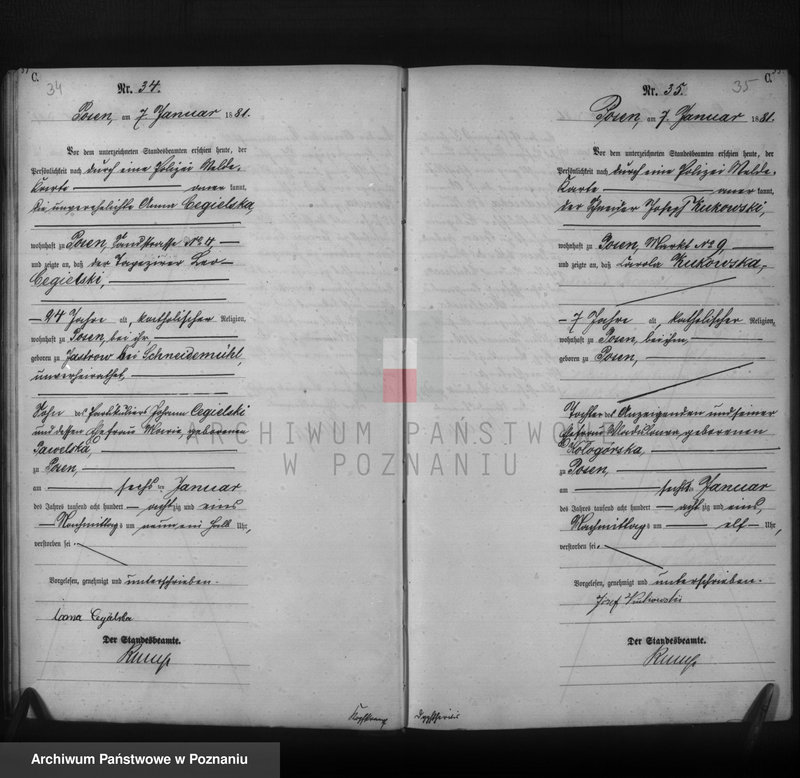 C.
34
Nr. 34.
Posen, am 7 Januar 1881.
Vor dem unterzeichneten Standesbeamten erschien heute, der
Persönlichkeit nach durch eine Polizei Melde-
Karte aner kannt,
die unverehelichte Anna Cegielska,
wohnhaft zu Posen, Sandstrasse No 4
und zeigte an, daß der Tapezirer Leo
Cegielski,
24 Jahre alt, katholischer Religion,
wohnhaft zu Posen, bei ihr,
geboren zu Jastrow bei Schneidemühl,
unverheirathet,
Sohn des Partikulier Johann Cegielski
und dessen Ehefrau Marie, geborenen
zu Posen,
am sechsten Januar
des Jahres tausend acht hundert achtzig und eins
Nachmittags um neun ein halb Uhr,
verstorben sei.
Vorgelesen, genehmigt und unterschrieben.
Der Standesbeamte.
35
C.
Nr. 35.
Posen, am 7. Januar 1881.
Vor dem unterzeichneten Standesbeamten erschien heute, der
Persönlichkeit nach durch eine Polizei Melde-
Karte aner kannt,
der Schneider Joseph Kukowski,
wohnhaft zu Posen, Markt No 9
und zeigte an, daß Carola Kukowska,
7 Jahre alt, katholischer Religion,
wohnhaft zu Posen, bei ihm,
geboren zu Posen,
Tochter des Anzeigenden und seiner
Ehefrau geborenen
zu Posen,
am sechsten Januar
des Jahres tausend acht hundert achtzig und eins,
Nachmittags um elf Uhr,
verstorben sei.
Vorgelesen, genehmigt und unterschrieben.
Josef Kukowski
Der Standesbeamte.
ARCHIWUM PAŃSTWOWE
W POZNANIU
Archiwum Państwowe w Poznaniu